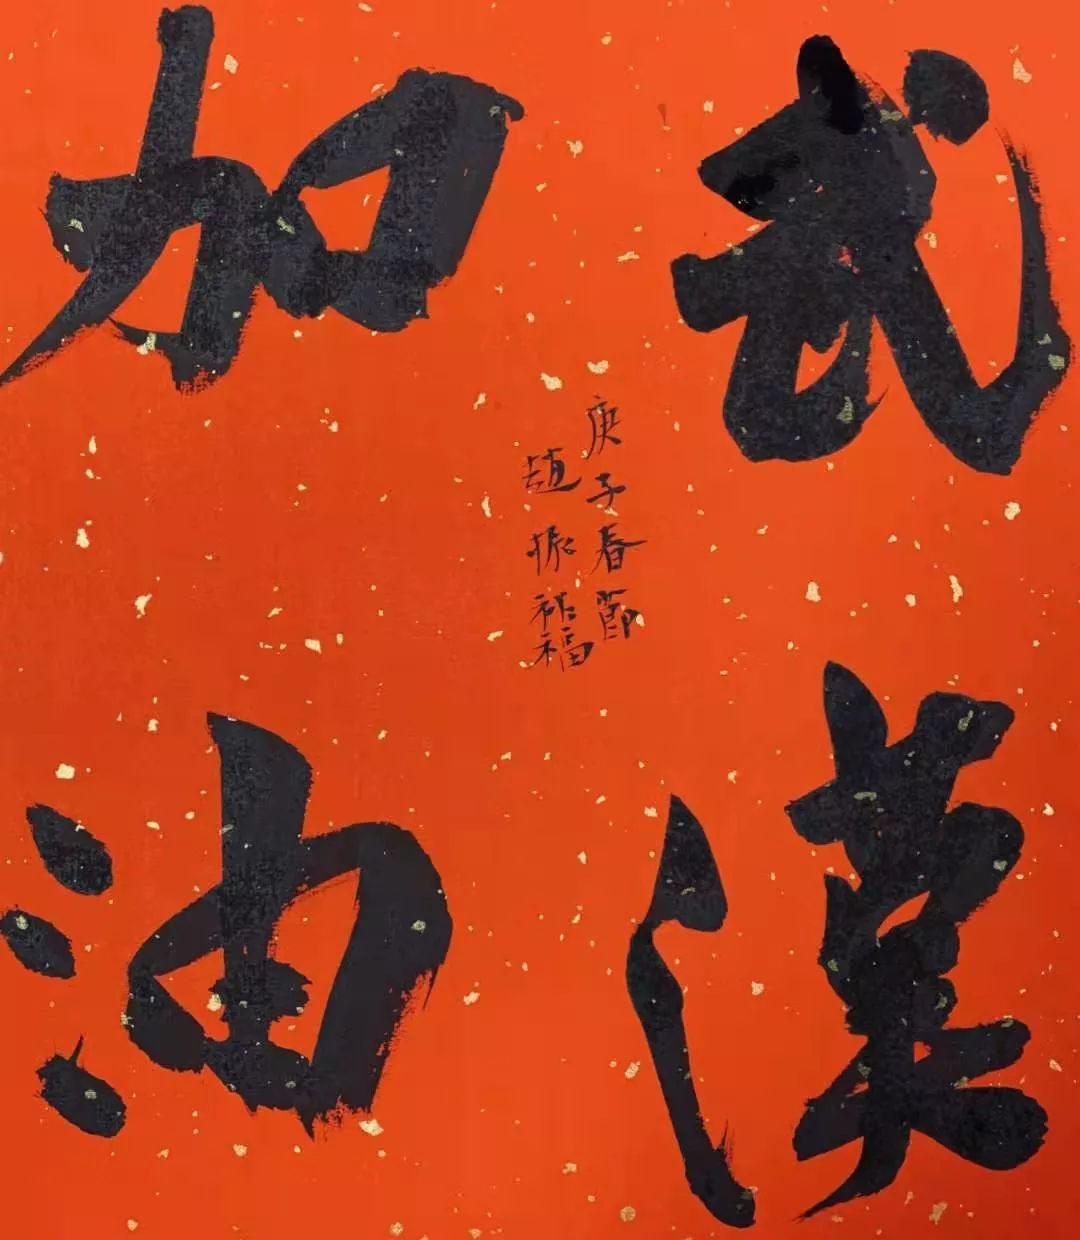 武漢
加油
庚子春節
趙振祈福